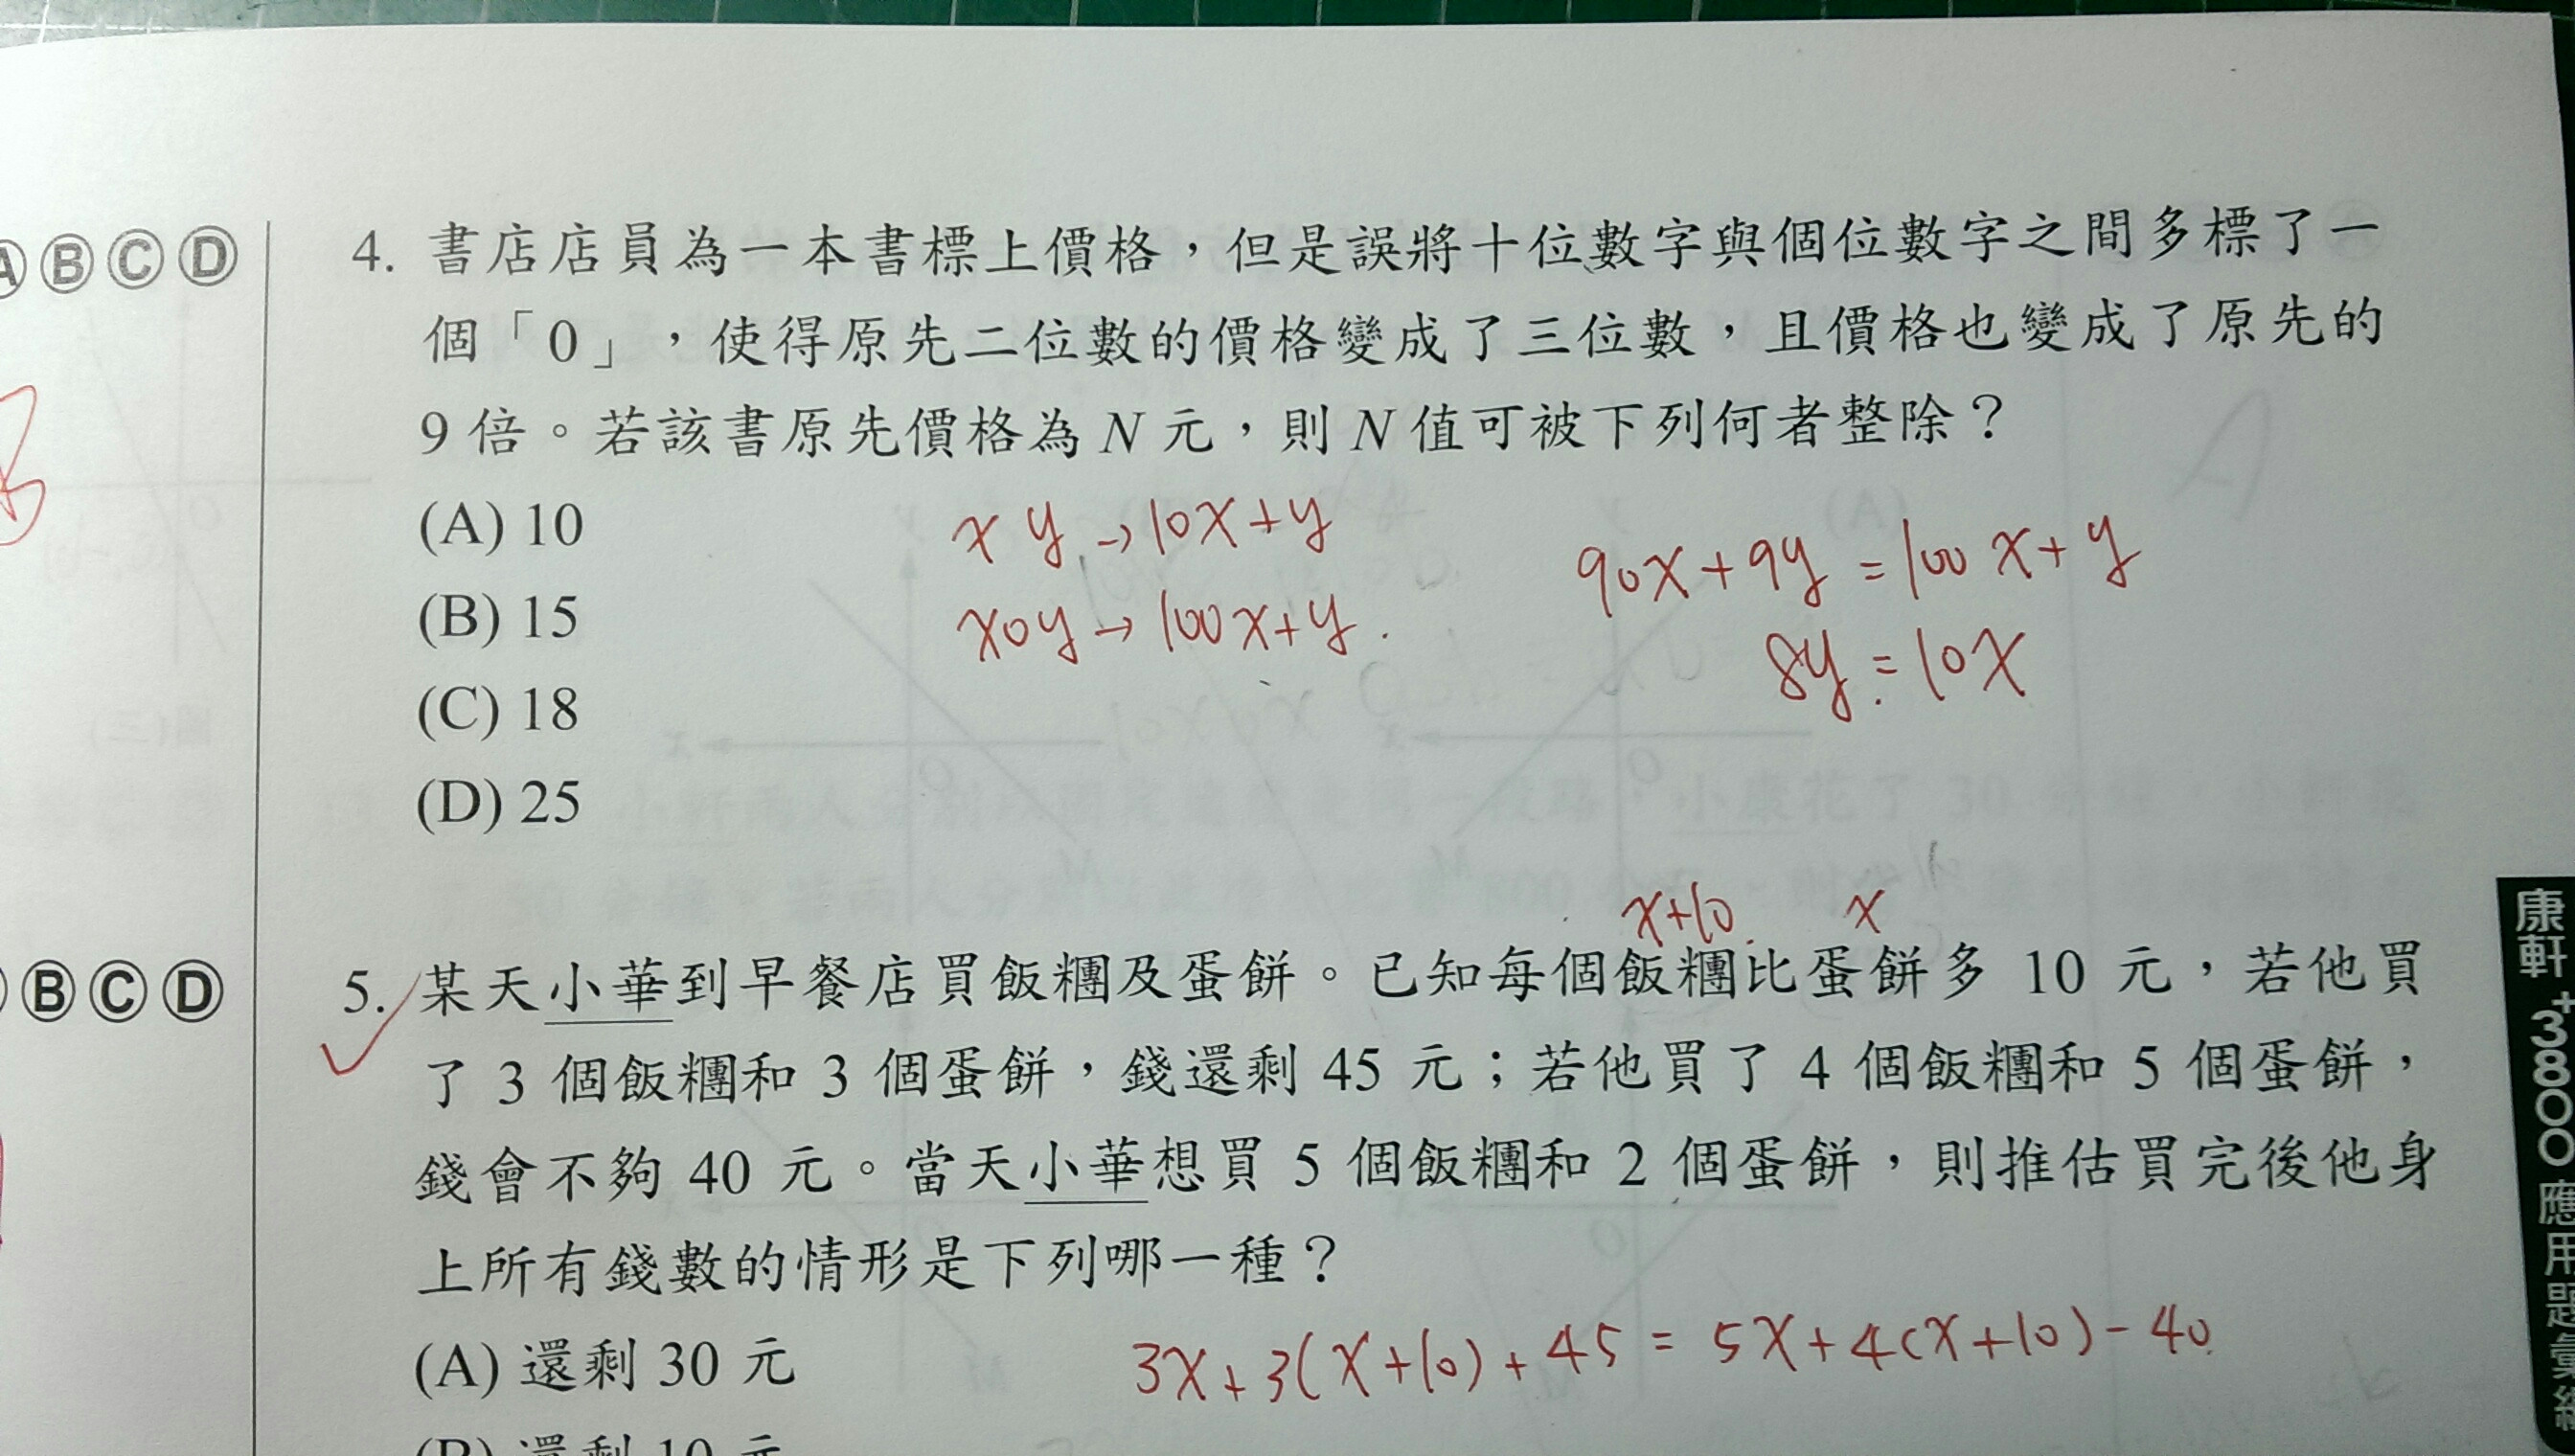 Ⓐ Ⓑ Ⓒ Ⓓ
4. 書店店員為一本書標上價格，但是誤將十位數字與個位數字之間多標了一
個「0」，使得原先二位數的價格變成了三位數，且價格也變成了原先的
9 倍。若該書原先價格為 N 元，則 N 值可被下列何者整除？
(A) 10
(B) 15
(C) 18
(D) 25
x y → 10x+y
x0y → 100x+y.
90x+9y = 100x+y
8y = 10x
x+10 x
Ⓑ Ⓒ Ⓓ
5. 某天小華到早餐店買飯糰及蛋餅。已知每個飯糰比蛋餅多 10 元，若他買
了 3 個飯糰和 3 個蛋餅，錢還剩 45 元；若他買了 4 個飯糰和 5 個蛋餅，
錢會不夠 40 元。當天小華想買 5 個飯糰和 2 個蛋餅，則推估買完後他身
上所有錢數的情形是下列哪一種？
(A) 還剩 30 元
3x+3(x+10)+45 = 5x+4(x+10)-40
(B) 還剩 10 元
康軒+3800應用題彙